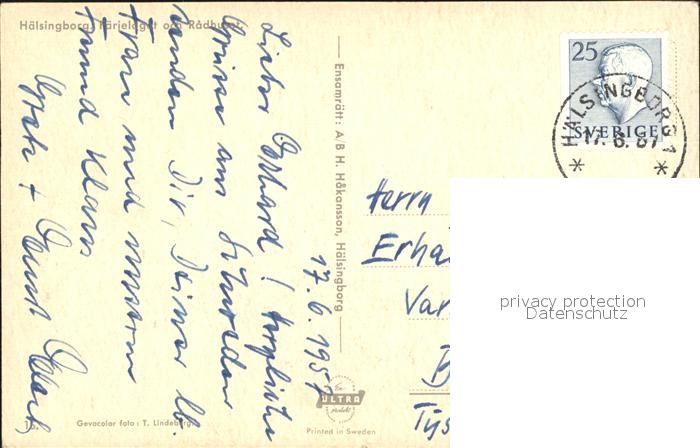 Hälsingborg. Färjeläget och Rådhuset.
Lieber Erhard! Herzliche
Grüsse aus Schweden
senden Dir, Deiner lb.
Frau und unserm
Freund Klaus
Greta +
17.6.1957
Ensamrätt: A/B H. Håkansson, Hälsingborg
25
SVERIGE
HÄLSINGBORG 1
17. 6. 57
Herrn
Erha
Var
B
Tys
privacy protection
Datenschutz
ULTRA
Printed in Sweden
Gevacolor foto: T. Lindeberg